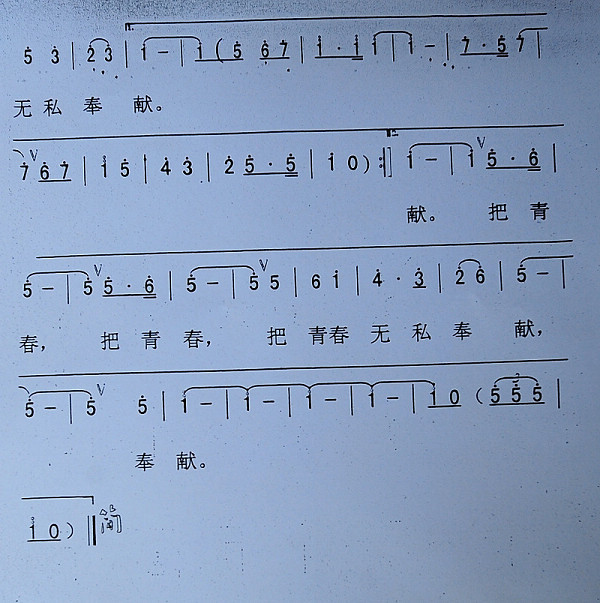 5 3 | 2 3 | 1 - | 1 ( 5 6 7 | 1 · 1 1 | 1 - | 7 · 5 7 |
无私奉献。
7 V 6 7 | 1 5 | 4 3 | 2 5 · 5 | 1 0 ) :| 1 - | 1 V 5 · 6 |
献。 把青
5 - | 5 V 5 · 6 | 5 - | 5 V 5 | 6 1 | 4 · 3 | 2 6 | 5 - |
春， 把青春， 把青春无私奉献，
5 - | 5 V 5 | 1 - | 1 - | 1 - | 1 - | 1 0 ( 5 5 5 |
奉献。
1 0 ) ||